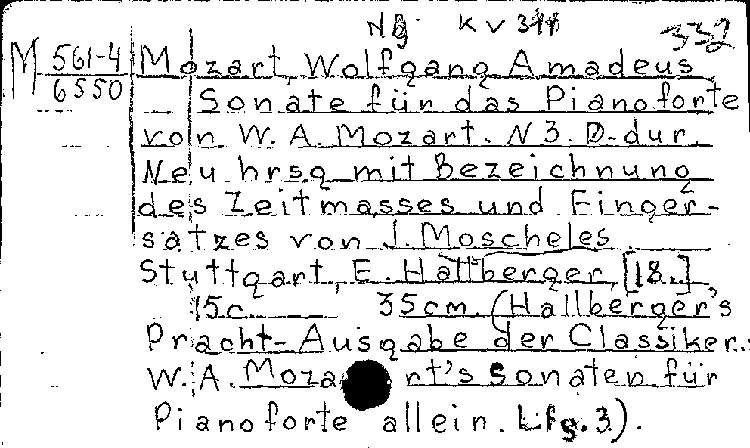 NB. KV 311 332
M 561-4
6550
Mozart, Wolfgang Amadeus
Sonate für das Pianoforte
von W. A. Mozart. N 3. D-dur.
Neu hrsg mit Bezeichnung
des Zeitmasses und Finger-
satzes von J. Moscheles
Stuttgart, E. Hallberger, [18..]
15c. 35cm. (Hallberger's
Pracht-Ausgabe der Classiker.
W. A. Mozart's Sonaten für
Pianoforte allein. Lfg. 3).